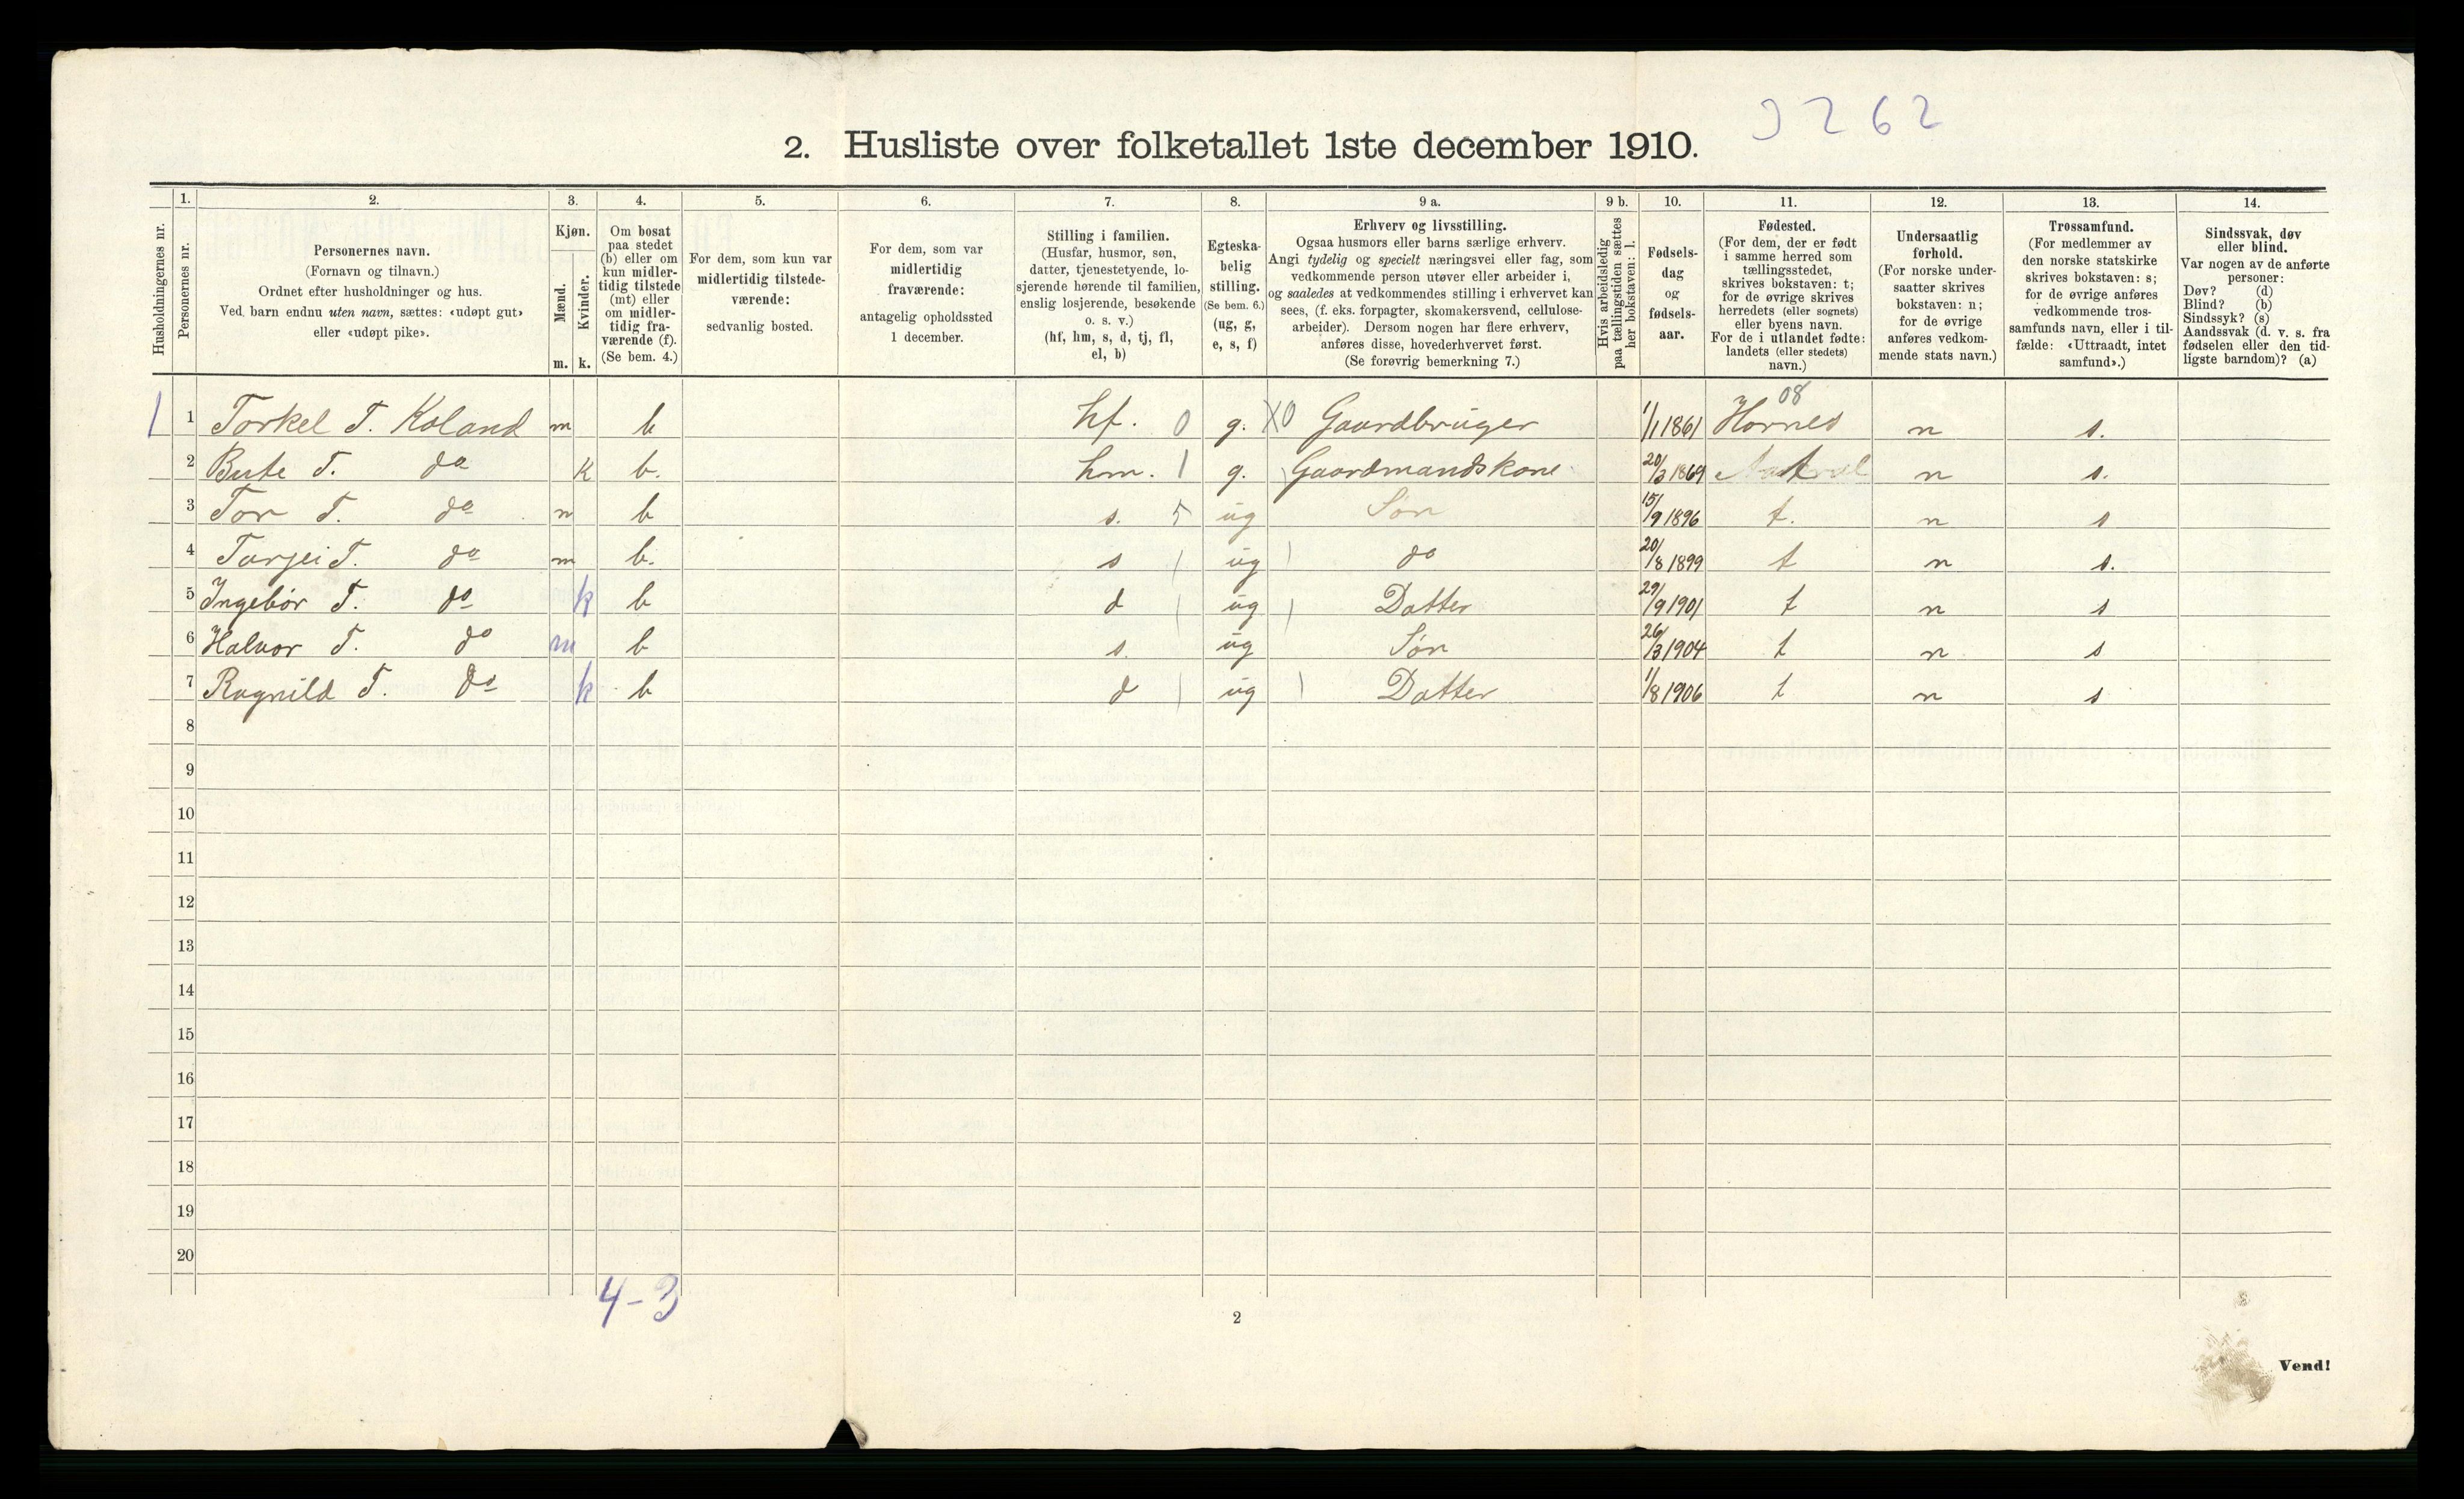 3262
2. Husliste over folketallet 1ste december 1910.
Husholdningernes nr.
1.
Personernes nr.
2.
Personernes navn.
(Fornavn og tilnavn.)
Ordnet efter husholdninger og hus.
Ved barn endnu uten navn, sættes: «udøpt gut»
eller «udøpt pike».
3.
Kjøn.
Mænd.
Kvinder.
m. k.
4.
Om bosat
paa stedet
(b) eller om
kun midler-
tidig tilstede
(mt) eller
om midler-
tidig fra-
værende (f).
(Se bem. 4.)
5.
For dem, som kun var
midlertidig tilstede-
værende:
sedvanlig bosted.
6.
For dem, som var
midlertidig
fraværende:
antagelig opholdssted
1 december.
7.
Stilling i familien.
(Husfar, husmor, søn,
datter, tjenestetyende, lo-
sjerende hørende til familien,
enslig losjerende, besøkende
o. s. v.)
(hf, hm, s, d, tj, fl,
el, b)
8.
Egteska-
belig
stilling.
(Se bem. 6.)
(ug, g,
e, s, f)
9 a.
Erhverv og livsstilling.
Ogsaa husmors eller barns særlige erhverv.
Angi tydelig og specielt næringsvei eller fag, som
vedkommende person utøver eller arbeider i,
og saaledes at vedkommendes stilling i erhvervet kan
sees, (f. eks. forpagter, skomakersvend, cellulose-
arbeider). Dersom nogen har flere erhverv,
anføres disse, hovederhvervet først.
(Se forøvrig bemerkning 7.)
9 b.
Hvis arbeidsledig
paa tællingstiden sættes
her bokstaven: l.
10.
Fødsels-
dag
og
fødsels-
aar.
11.
Fødested.
(For dem, der er født
i samme herred som
tællingsstedet,
skrives bokstaven: t;
for de øvrige skrives
herredets (eller sognets)
eller byens navn.
For de i utlandet fødte:
landets (eller stedets)
navn.)
12.
Undersaatlig
forhold.
(For norske under-
saatter skrives
bokstaven: n;
for de øvrige
anføres vedkom-
mende stats navn.)
13.
Trossamfund.
(For medlemmer av
den norske statskirke
skrives bokstaven: s;
for de øvrige anføres
vedkommende tros-
samfunds navn, eller i til-
fælde: «Uttraadt, intet
samfund».)
14.
Sindssvak, døv
eller blind.
Var nogen av de anførte
personer:
Døv? (d)
Blind? (b)
Sindssyk? (s)
Aandssvak (d. v. s. fra
fødselen eller den tid-
ligste barndom)? (a)
08
1 1 Torkel T. Koland m b hf. 0 g. X0 Gaardbruger 1/1 1861 Hornes n s.
2 Bute T. do k b. hm. 1 g. Gaardmandskone 20/3 1869 t n s.
3 Tor T. do m b s. 5 ug Søn 15/9 1896 t. n s
4 Tarjei T. do m b. s ug do 20/8 1899 t n s.
5 Ingebør T. do k b d ug Datter 29/9 1901 t n s
6 Halvor T. do m b s. ug Søn 26/3 1904 t n s
7 Ragnild T. do k b d ug Datter 1/8 1906 t n s
8
9
10
11
12
13
14
15
16
17
18
19
20
4-3
2
Vend!